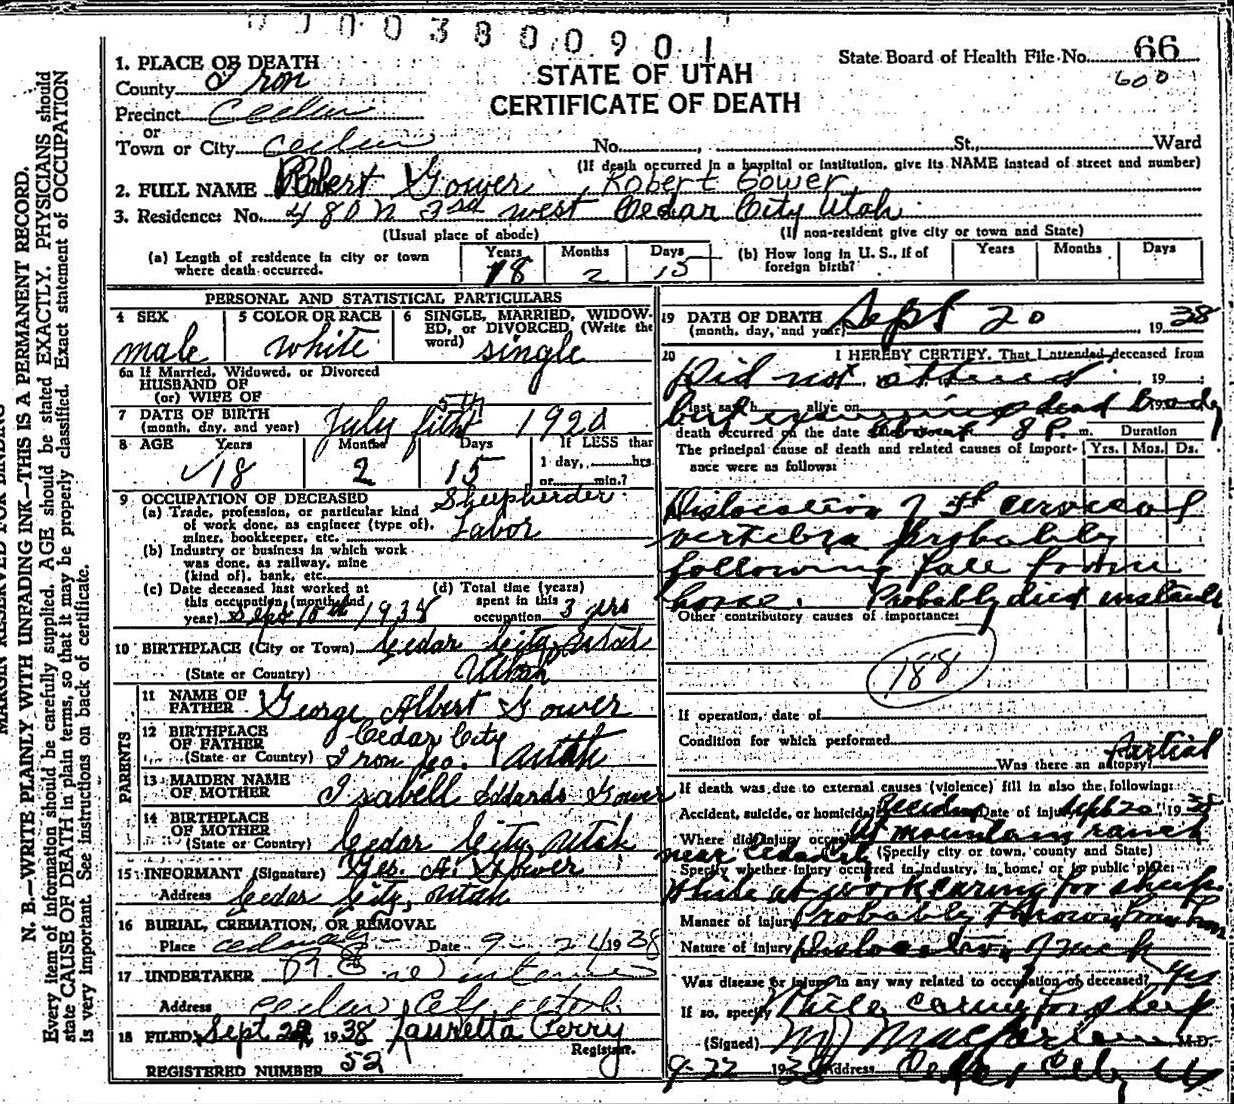 0 0 0 3 8 0 0 9 0 1
State Board of Health File No. 66
600
STATE OF UTAH
CERTIFICATE OF DEATH
1. PLACE OF DEATH
County Iron
Precinct Cedar
or
Town or City Cedar No. , St., Ward
(If death occurred in a hospital or institution, give its NAME instead of street and number)
2. FULL NAME Robert Gower , Robert Gower
3. Residence: No. 480 N 3rd west Cedar City Utah
(Usual place of abode) (If non-resident give city or town and State)
(a) Length of residence in city or town where death occurred. Years 18 Months 2 Days 15
(b) How long in U. S., if of foreign birth? Years Months Days
PERSONAL AND STATISTICAL PARTICULARS
4 SEX male
5 COLOR OR RACE white
6 SINGLE, MARRIED, WIDOWED, or DIVORCED, (Write the word) single
6a If Married, Widowed, or Divorced
HUSBAND OF
(or) WIFE OF
7 DATE OF BIRTH (month, day, and year) July 5th 1920
8 AGE Years 18 Months 2 Days 15 If LESS than 1 day, hrs. or min.?
9 OCCUPATION OF DECEASED
(a) Trade, profession, or particular kind of work done, as engineer (type of), miner, bookkeeper, etc. Sheepherder Labor
(b) Industry or business in which work was done, as railway, mine (kind of), bank, etc.
(c) Date deceased last worked at this occupation (month and year) Sept 10th 1938
(d) Total time (years) spent in this occupation 3 yrs
10 BIRTHPLACE (City or Town) Cedar City, Utah
(State or Country) Utah
PARENTS
11 NAME OF FATHER George Albert Gower
12 BIRTHPLACE OF FATHER Cedar City
(State or Country) Iron Co. Utah
13 MAIDEN NAME OF MOTHER Isabell Eddards Gower
14 BIRTHPLACE OF MOTHER
(State or Country) Cedar City Utah
15 INFORMANT (Signature) Geo. A. Gower
Address Cedar City, Utah
16 BURIAL, CREMATION, OR REMOVAL
Place Date 9-24 1938
17 UNDERTAKER
Address Cedar City Utah
18 FILED Sept 1938 Lauretta Perry
Registrar.
REGISTERED NUMBER 52
19 DATE OF DEATH (month, day, and year) Sept 20 1938
20 I HEREBY CERTIFY, That I attended deceased from
Did not attend 19
last saw h alive on 19
but dead body
death occurred on the date about 8 P. m.
The principal cause of death and related causes of importance were as follows: Duration Yrs. Mos. Ds.
Dislocation of 5th cervical
vertebra probably
following fall from
horse. Probably died
Other contributory causes of importance:
188
If operation, date of
Condition for which performed
Was there an autopsy? Partial
If death was due to external causes (violence) fill in also the following:
Accident, suicide, or homicide Accident Date of injury Sept 20 1938
Where did injury occur At mountain ranch
near Cedar City (Specify city or town, county and State)
Specify whether injury occurred in industry, in home, or in public place:
While at work caring for sheep
Manner of injury Probably thrown from
Nature of injury Dislocation of neck
Was disease or injury in any way related to occupation of deceased? yes
If so, specify While caring for sheep
(Signed) MJ Macfarlane M.D.
9-22 1938 Address Cedar City U
MARGIN RESERVED FOR BINDING
N. B.—WRITE PLAINLY WITH UNFADING INK—THIS IS A PERMANENT RECORD.
Every item of information should be carefully supplied. AGE should be stated EXACTLY. PHYSICIANS should
state CAUSE OF DEATH in plain terms, so that it may be properly classified. Exact statement of OCCUPATION
is very important. See instructions on back of certificate.